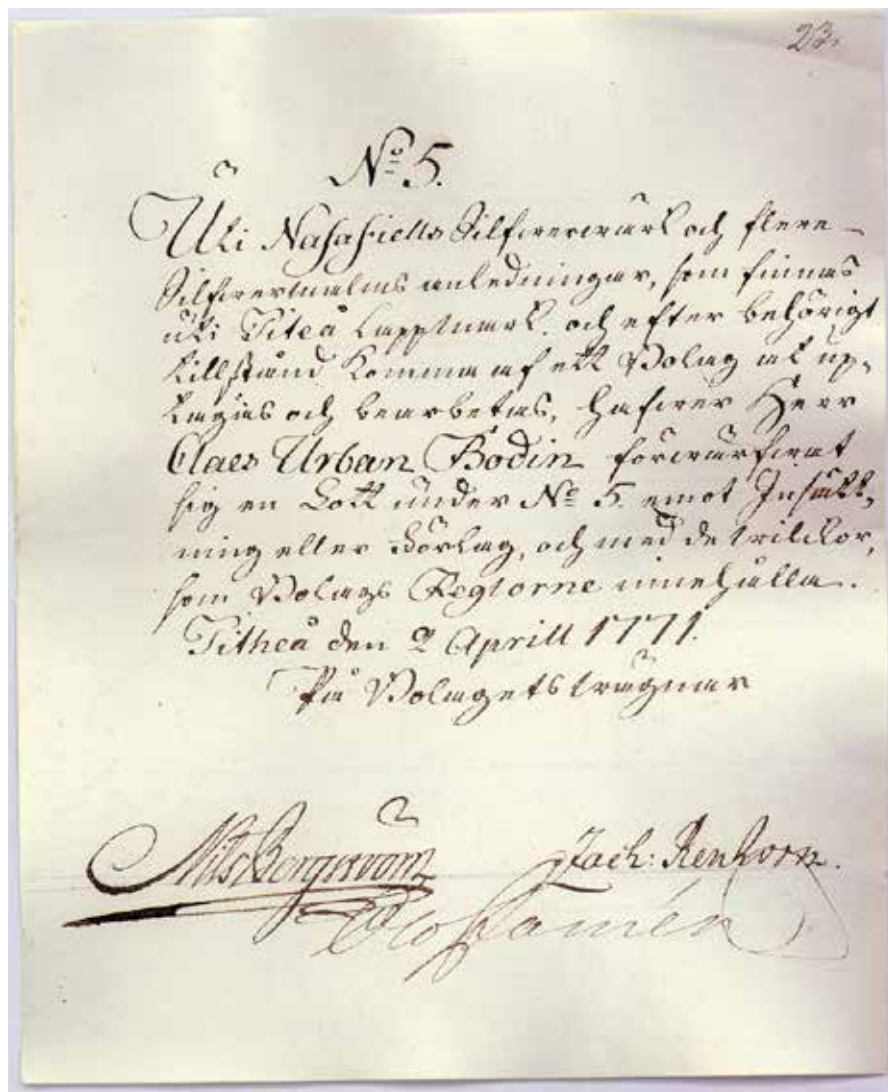 23.
No 5.
Uti Nasafiells Silfwerwärk och flere
Silfwermalms anledningar, som finnas
uti Piteå Lappmark, och efter behörigt
tillstånd komma af ett Bolag at up-
tagas och bearbetas, hafwer Herr
Claes Urban Bodin förwärfwat
sig en Lott under No 5. emot Insätt-
ning eller Förlag, och med de wilckor,
som Bolags Reglorne innehålla.
Pitheå den 2 Aprill 1771.
På Bolagets wägnar
Nils Bergström Zach: Renhorn.